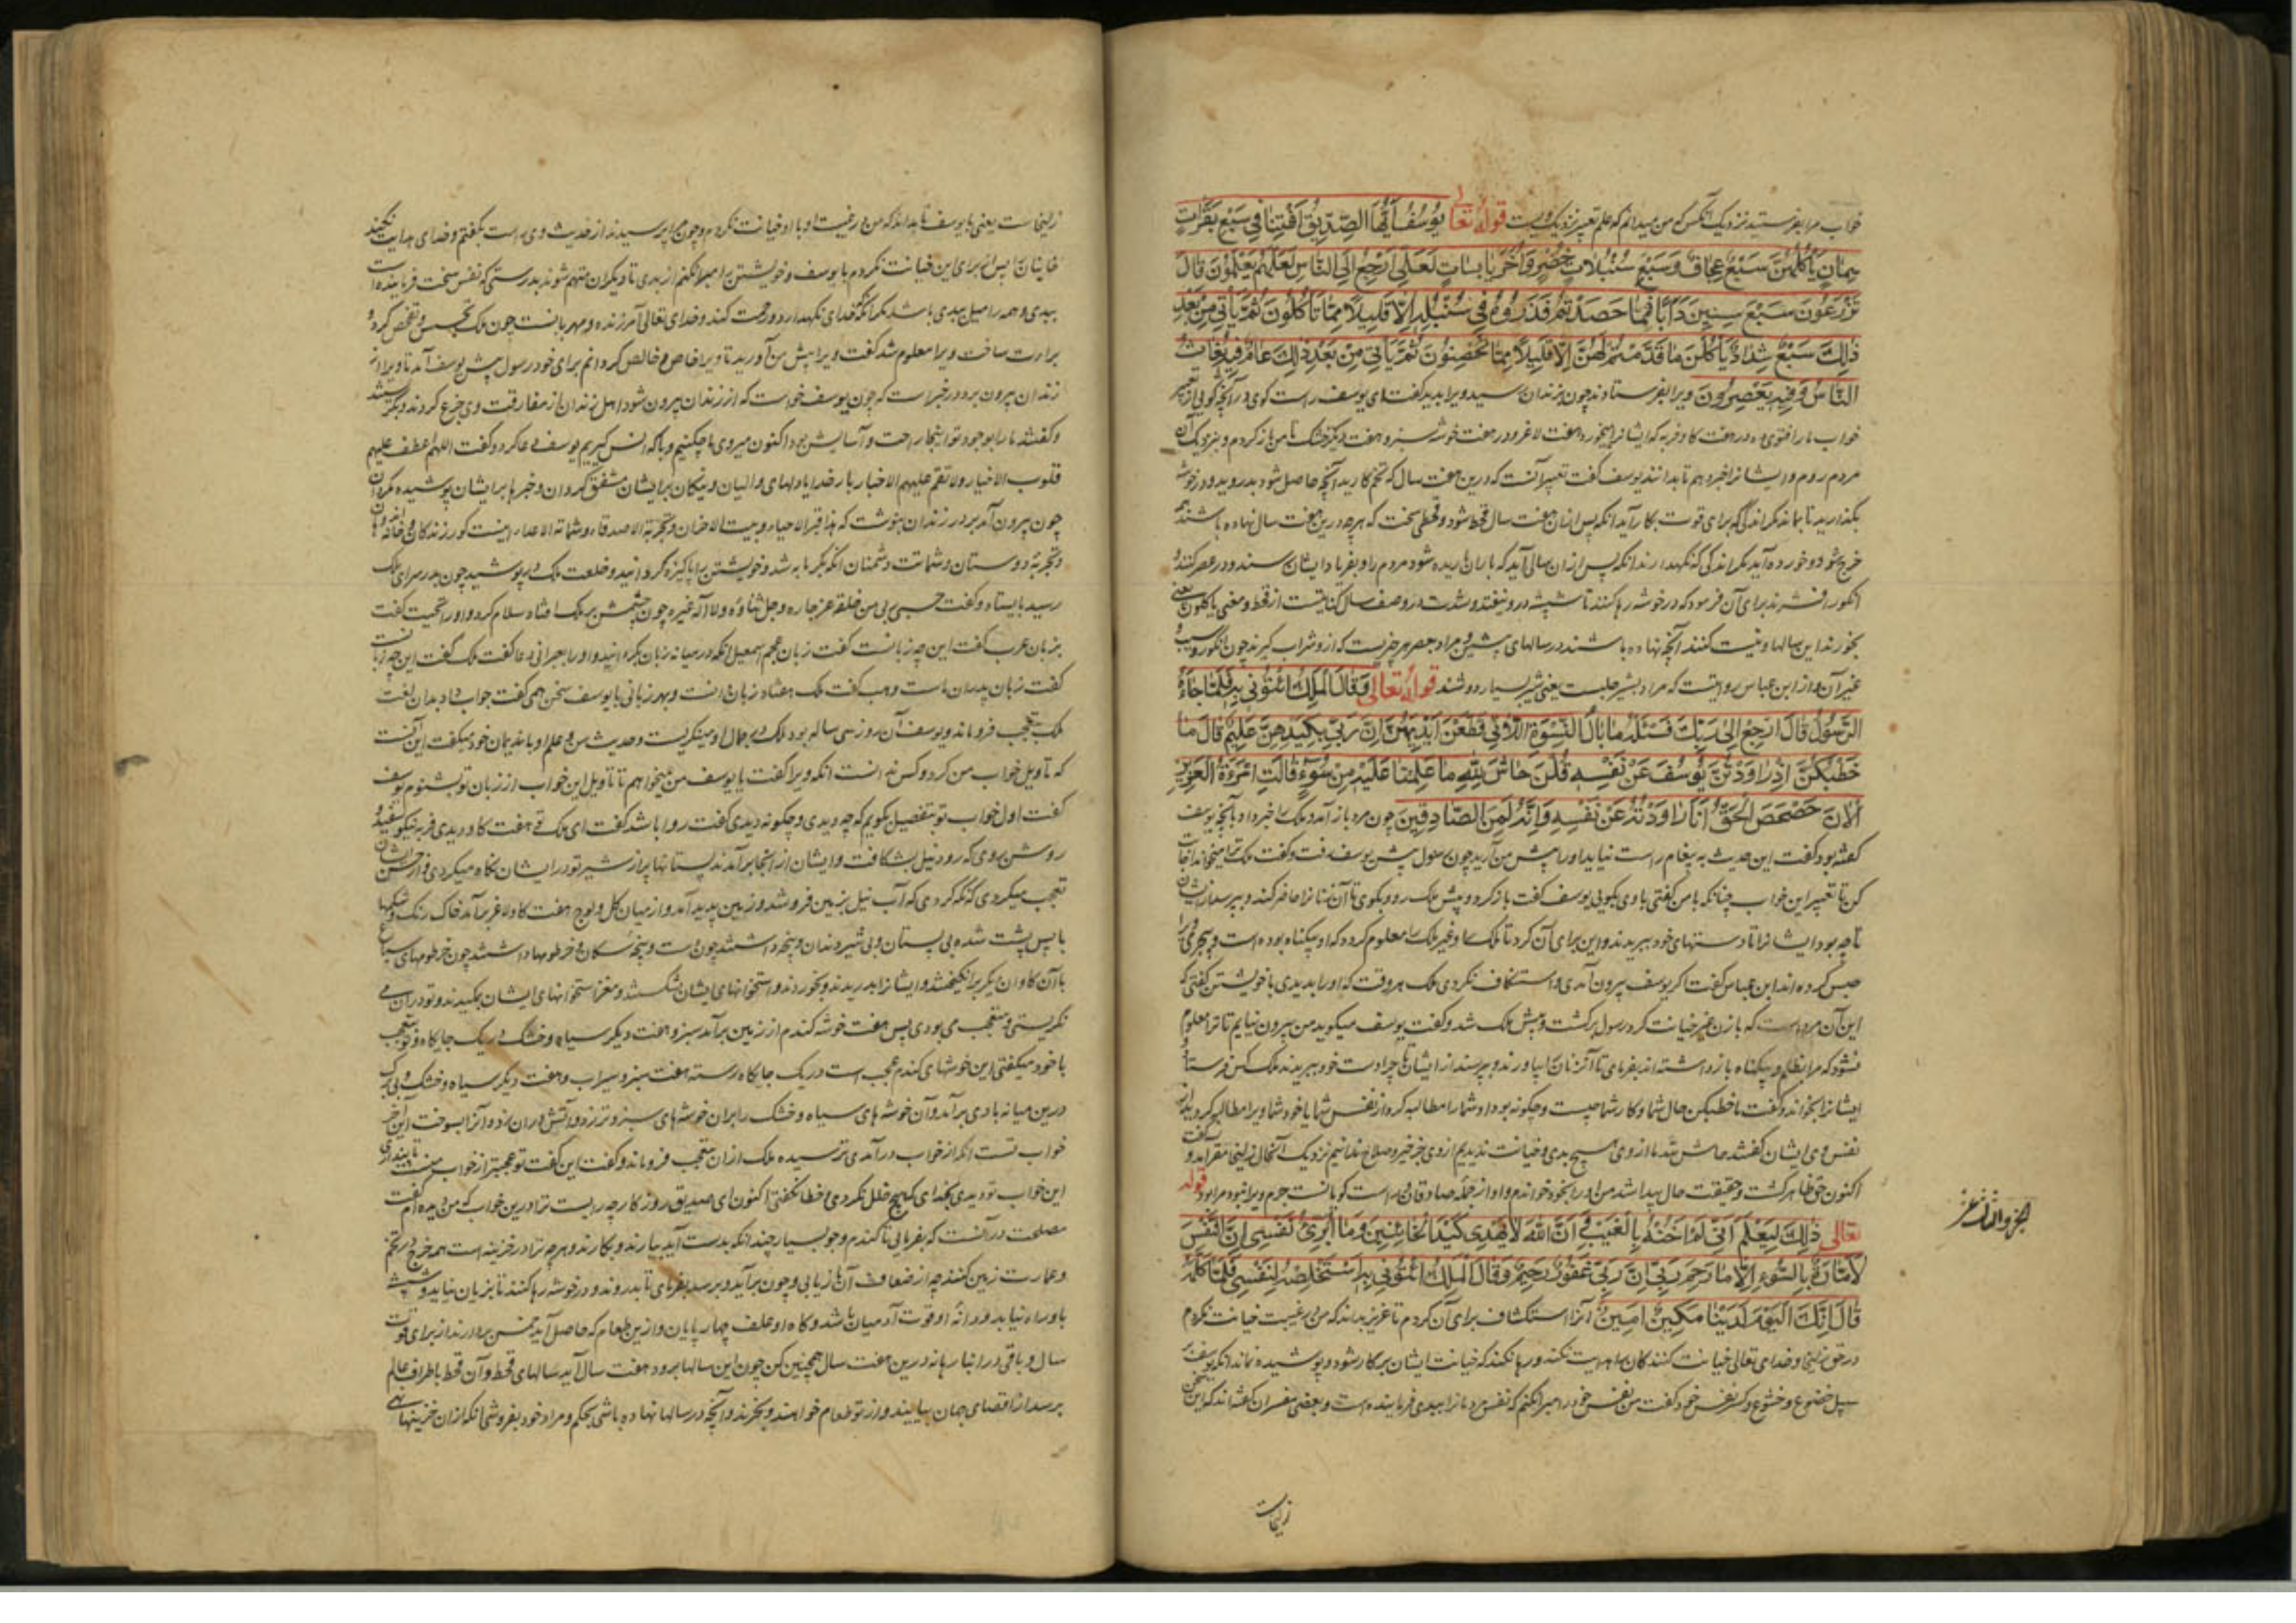 خواب مرا بفرستید نزدیک آنکس که من میدانم که علم تعبیر نزدیک ویست قوله تعالی یُوسُفُ اَیُّهَا الصِّدِّیقُ اَفْتِنَا فِی سَبْعِ بَقَرَاتٍ
سِمَانٍ یَأْکُلُهُنَّ سَبْعٌ عِجَافٌ وَسَبْعِ سُنْبُلَاتٍ خُضْرٍ وَاُخَرَ یَابِسَاتٍ لَعَلِّی اَرْجِعُ اِلَی النَّاسِ لَعَلَّهُمْ یَعْلَمُونَ قَالَ
تَزْرَعُونَ سَبْعَ سِنِینَ دَاَبًا فَمَا حَصَدْتُمْ فَذَرُوهُ فِی سُنْبُلِهِ اِلَّا قَلِیلًا مِمَّا تَأْکُلُونَ ثُمَّ یَأْتِی مِنْ بَعْدِ
ذٰلِکَ سَبْعٌ شِدَادٌ یَأْکُلْنَ مَا قَدَّمْتُمْ لَهُنَّ اِلَّا قَلِیلًا مِمَّا تُحْصِنُونَ ثُمَّ یَأْتِی مِنْ بَعْدِ ذٰلِکَ عَامٌ فِیهِ یُغَاثُ
النَّاسُ وَفِیهِ یَعْصِرُونَ ویرا بفرستادند چون بزندان رسید ویرا بدید گفت ای یوسف راست گوی در آنچه گویی از تعبیر
خواب ما را فتوی ده در هفت کاو فربه که ایشانرا بیخورد هفت لاغر و در هفت خوشه سبز و هفت دیگر خشک تا من باز کردم و بنزدیک آن
مردم روم و ایشانرا خبر دهم تا بدانند یوسف گفت تعبیر آنست که درین هفت سال که تخم کارید آنچه حاصل شود بدروید و در خوشه
بگذارید تا بماند مگر اندکی که برای قوت بکار آید انکه پس ازان هفت سال قحط شود و قحطی سخت که هرچه درین هفت سال نهاده باشند
خرج شود و خورده آید مگر اندکی که نگهدارند انکه پس ازان سالی آید که باران باریده شود مردم را و بفریاد ایشان رسند و در عصر کنند
انگور افشرند برای آن فرمود که در خوشه رها کنند تا شپشه درو نیفتد و شدت در وصف سال کنایتست از قحط و معنی یاکلون یعنی
بخورند این سالها و نیست کنند آنچه نهاده باشند در سالهای پیشین و مراد بعصر هر چیزیست که ازو شراب گیرند چون انگور و سیب و
غیر آن و از ابن عباس روایتست که مراد بشیر حلبست یعنی شیر بسیار دوشند قوله تعالی وَقَالَ الْمَلِکُ ائْتُونِی بِهِ فَلَمَّا جَاءَهُ
الرَّسُولُ قَالَ ارْجِعْ اِلٰی رَبِّکَ فَسْئَلْهُ مَا بَالُ النِّسْوَةِ اللَّاتِی قَطَّعْنَ اَیْدِیَهُنَّ اِنَّ رَبِّی بِکَیْدِهِنَّ عَلِیمٌ قَالَ مَا
خَطْبُکُنَّ اِذْ رَاوَدْتُنَّ یُوسُفَ عَنْ نَفْسِهِ قُلْنَ حَاشَ لِلّٰهِ مَا عَلِمْنَا عَلَیْهِ مِنْ سُوءٍ قَالَتِ امْرَءَةُ الْعَزِیزِ
الْآنَ حَصْحَصَ الْحَقُّ اَنَا رَاوَدْتُهُ عَنْ نَفْسِهِ وَاِنَّهُ لَمِنَ الصَّادِقِینَ چون مرد باز آمد و ملک را خبر داد بآنچه یوسف
گفته بود گفت این حدیث به پیغام راست نیاید او را پیش من آرید چون رسول پیش یوسف رفت و گفت ملک ترا میخواند
کن تا تعبیر این خواب چنانکه با من گفتی با وی بگویی یوسف گفت باز کرد و پیش ملک رو و بگوی تا آن زنانرا حاضر کنند و بپرسد از ایشان
تا چه بود ایشانرا تا دستهای خود ببریدند و این برای آن کرد تا ملک را و غیر ملک را معلوم گردد که او بیگناه بوده است
حبس کرده اند ابن عباس گفت اگر یوسف بیرون آمدی و استکشاف نکردی ملک هر وقت که او را بدیدی با خویشتن گفتی که
این آن مرد است که با زن عزیز خیانت کرد رسول برگشت و پیش ملک شد و گفت یوسف میگوید من بیرون نیایم تا ترا معلوم
نشود که مرا بظلم و بیگناه بازداشته اند بفرمای تا آن زنان را بیاورند و بپرسند از ایشان تا چرا دست خود ببریدند ملک کس فرستاد
ایشانرا بخواند و گفت ما خطبکن حال شما و کار شما چیست و چگونه بود او شما را مطالبه کرد از نفس شما یا خود شما ویرا مطالبه کردید از
نفس وی ایشان گفتند حاش لله ما از وی هیچ بدی و خیانت ندیدیم از وی جز خیر و صلاح ندانیم نزدیک آنحال زلیخا مقر آمد و گفت
اکنون حق ظاهر گشت و حقیقت حال پیدا شد من او را بخود خواندم و او از جمله صادقان است گویا نست جرم ویرا نبود مرا بود قوله
تعالی ذٰلِکَ لِیَعْلَمَ اَنِّی لَمْ اَخُنْهُ بِالْغَیْبِ وَاَنَّ اللّٰهَ لَا یَهْدِی کَیْدَ الْخَائِنِینَ وَمَا اُبَرِّئُ نَفْسِی اِنَّ النَّفْسَ
لَاَمَّارَةٌ بِالسُّوءِ اِلَّا مَا رَحِمَ رَبِّی اِنَّ رَبِّی غَفُورٌ رَحِیمٌ وَقَالَ الْمَلِکُ ائْتُونِی بِهِ اَسْتَخْلِصْهُ لِنَفْسِی فَلَمَّا کَلَّمَهُ
قَالَ اِنَّکَ الْیَوْمَ لَدَیْنَا مَکِینٌ اَمِینٌ آنرا استکشاف برای آن کردم تا عزیز بداند که من در غیبت خیانت نکردم
در حق زلیخا و خدای تعالی خیانت کنندگان را هدایت نکند و رها نکند که خیانت ایشان بر کار شود و پوشیده نماند انکه یوسف
سبیل خضوع و خشوع و کسر نفس خود گفت من نفس خود را مبرا نکنم که نفس مردمانرا ببدی فرماینده است و بعضی مفسران گفته اند که این سخن
زلیخاست
زلیخاست یعنی تا یوسف بداند که من در غیبت او با او خیانت نکردم و چون مرا پرسیدند از حدیث وی راست بگفتم و خدای هدایت نکند
خاینان را پس برای این خیانت نکردم با یوسف و خویشتن را مبرا نکنم از بدی تا دیگران متهم شوند بدرستی که نفس سخت فرماینده است
ببدی و همه را میل ببدی باشد مگر آنکه خدای نگهدارد و رحمت کند و خدای تعالی آمرزنده و مهربانست چون ملک تجسس و تفحص کرد و
براءت ساحت ویرا معلوم شد گفت ویرا پیش من آورید تا ویرا خاص و خالص گردانم برای خود رسول پیش یوسف آمد تا ویرا از
زندان بیرون برد در خبر است که چون یوسف خواست که از زندان بیرون شود اهل زندان از مفارقت وی جزع کردند و بگریستند
و گفتند ما را بوجود تو اینجا راحت و آسایش بود اکنون میروی ما چکنیم و با که انس گیریم یوسف دعا کرد و گفت اللهم اعطف علیهم
قلوب الاخیار ولا تعم علیهم الاخبار بار خدایا دلهای والیان و نیکان بر ایشان مشفق گردان و خبرها بر ایشان پوشیده مگردان
چون بیرون آمد بر در زندان بنوشت که هذا قبر الاحیاء و بیت الاحزان و تجربة الاصدقاء و شماتة الاعداء اینست گور زندگان و خانه
و تجربه دوستان و شماتت دشمنان انکه بگرمابه شد و خویشتن را پاکیزه گردانید و خلعت ملک در پوشید چون بدر سرای ملک
رسید بایستاد و گفت حسبی ربی من خلقه عز جاره و جل ثناؤه ولا اله غیره چون چشمش بر ملک افتاد سلام کرد و او را تحیت گفت
بزبان عرب گفت این چه زبانست گفت زبان عمم اسمعیل انکه در میانه زبان بگردانید و او را بعبرانی دعا گفت ملک گفت این چه زبانست
گفت زبان پدران ماست وهب گفت ملک هفتاد زبان دانست و بهر زبانی با یوسف سخن همی گفت جواب داد بدان لغت
ملک بتعجب فرو ماند و یوسف آن روز سی ساله بود ملک در جمال او مینگریست و حدیث سن و علم او با ندیمان خود میگفت این آنست
که تاویل خواب من کرد و کس ندانست انکه ویرا گفت یا یوسف من میخواهم تا تاویل این خواب از زبان تو بشنوم یوسف
گفت اول خواب تو بتفصیل بگویم که چه دیدی و چگونه دیدی گفت روا باشد گفت ای ملک تو هفت کاو دیدی فربه نیکو سفید
روشن روی که رود نیل بشکافت و ایشان از انجا برآمدند پستانها پر از شیر تو در ایشان نگاه میکردی و از حسن ایشان
تعجب میکردی که نگه کردی که آب نیل بزمین فرو شد و زمین پدید آمد و از میان گل و لوح هفت کاو لاغر برآمد خاک رنگ و شکمها
با پس پشت شده بی پستان و بی شیر دندان و پنجه داشتند چون دست و پنجه سگان و خرطومها داشتند چون خرطومهای سباع
با آن کاوان یکبر انگیختند و ایشانرا بدریدند و بخوردند و استخوانهای ایشان بشکستند و مغز استخوانهای ایشان بمکیدند و تو در ان می
نگریستی و متعجب می بودی پس هفت خوشه گندم از زمین برآمد سبز و هفت دیگر سیاه و خشک در یک جایگاه و تو بتعجب
با خود میگفتی این خوشهای گندم عجب است در یک جایگاه رسته هفت سبز و سیراب و هفت دیگر سیاه و خشک و بی برگ
درین میانه بادی برآمد و آن خوشه های سیاه و خشک را بران خوشه های سبز و تر زد و آتش دران زد و آنرا بسوخت این آخر
خواب تست انکه از خواب درآمدی ترسیده ملک ازان متعجب فرو ماند و گفت این گفت تو عجبتر از خواب منست
این خواب تو دیدی بخدای که هیچ خلل نکردی و خطا نگفتی اکنون ای صدیق روزگار چه رایست ترا درین خواب که من دیده ام گفت
مصلحت در آنست که بفرمایی تا گندم و جو بسیار چندانکه بدست آید بیارند و بکارند و هرچه ترا در خزینه است همه خرج در تخم
و عمارت زمین کنند چه از ضعاف آن باز یابی و چون برآید و برسد بفرمای تا بدروند و در خوشه رها کنند تا بزیان نیاید و شپشه
باو راه نیابد و دانه او قوت آدمیان باشد و کاه او علف چهارپایان و ازین طعام که حاصل آید خمس بردارند از برای قوت
سال و باقی در انبار بنهند درین هفت سال همچنین کن چون این سالها برود هفت سال آید سالهای قحط و آن قحط باطراف عالم
برسد از اقصای جهان بیایند و از تو طعام خواهند و بخرند و آنچه در سالها نهاده باشی بحکم و مراد خود بفروشی انکه ازان خزینها